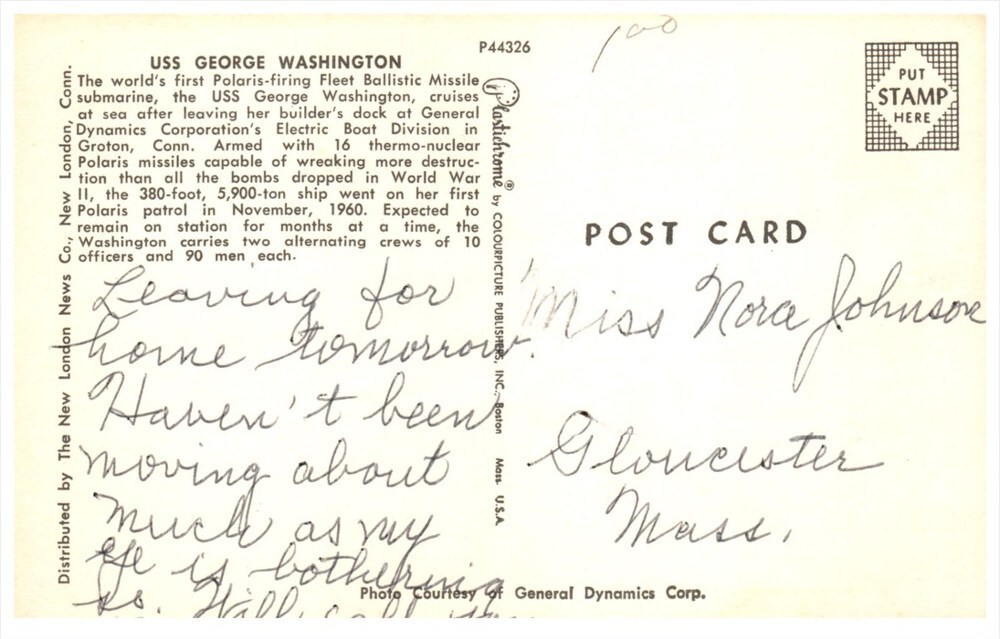 P44326
1 00
USS GEORGE WASHINGTON
The world's first Polaris-firing Fleet Ballistic Missile
submarine, the USS George Washington, cruises
at sea after leaving her builder's dock at General
Dynamics Corporation's Electric Boat Division in
Groton, Conn. Armed with 16 thermo-nuclear
Polaris missiles capable of wreaking more destruc-
tion than all the bombs dropped in World War
II, the 380-foot, 5,900-ton ship went on her first
Polaris patrol in November, 1960. Expected to
remain on station for months at a time, the
Washington carries two alternating crews of 10
officers and 90 men each.
Distributed by The New London News Co., New London, Conn.
Leaving for
home tomorrow.
Haven't been
moving about
much as my
eye is bothering
so. Will call
Plastichrome® by COLOURPICTURE PUBLISHERS, INC., Boston Mass U.S.A.
PUT
STAMP
HERE
POST CARD
Miss Nora Johnson
Gloucester
Mass.
Photo Courtesy of General Dynamics Corp.